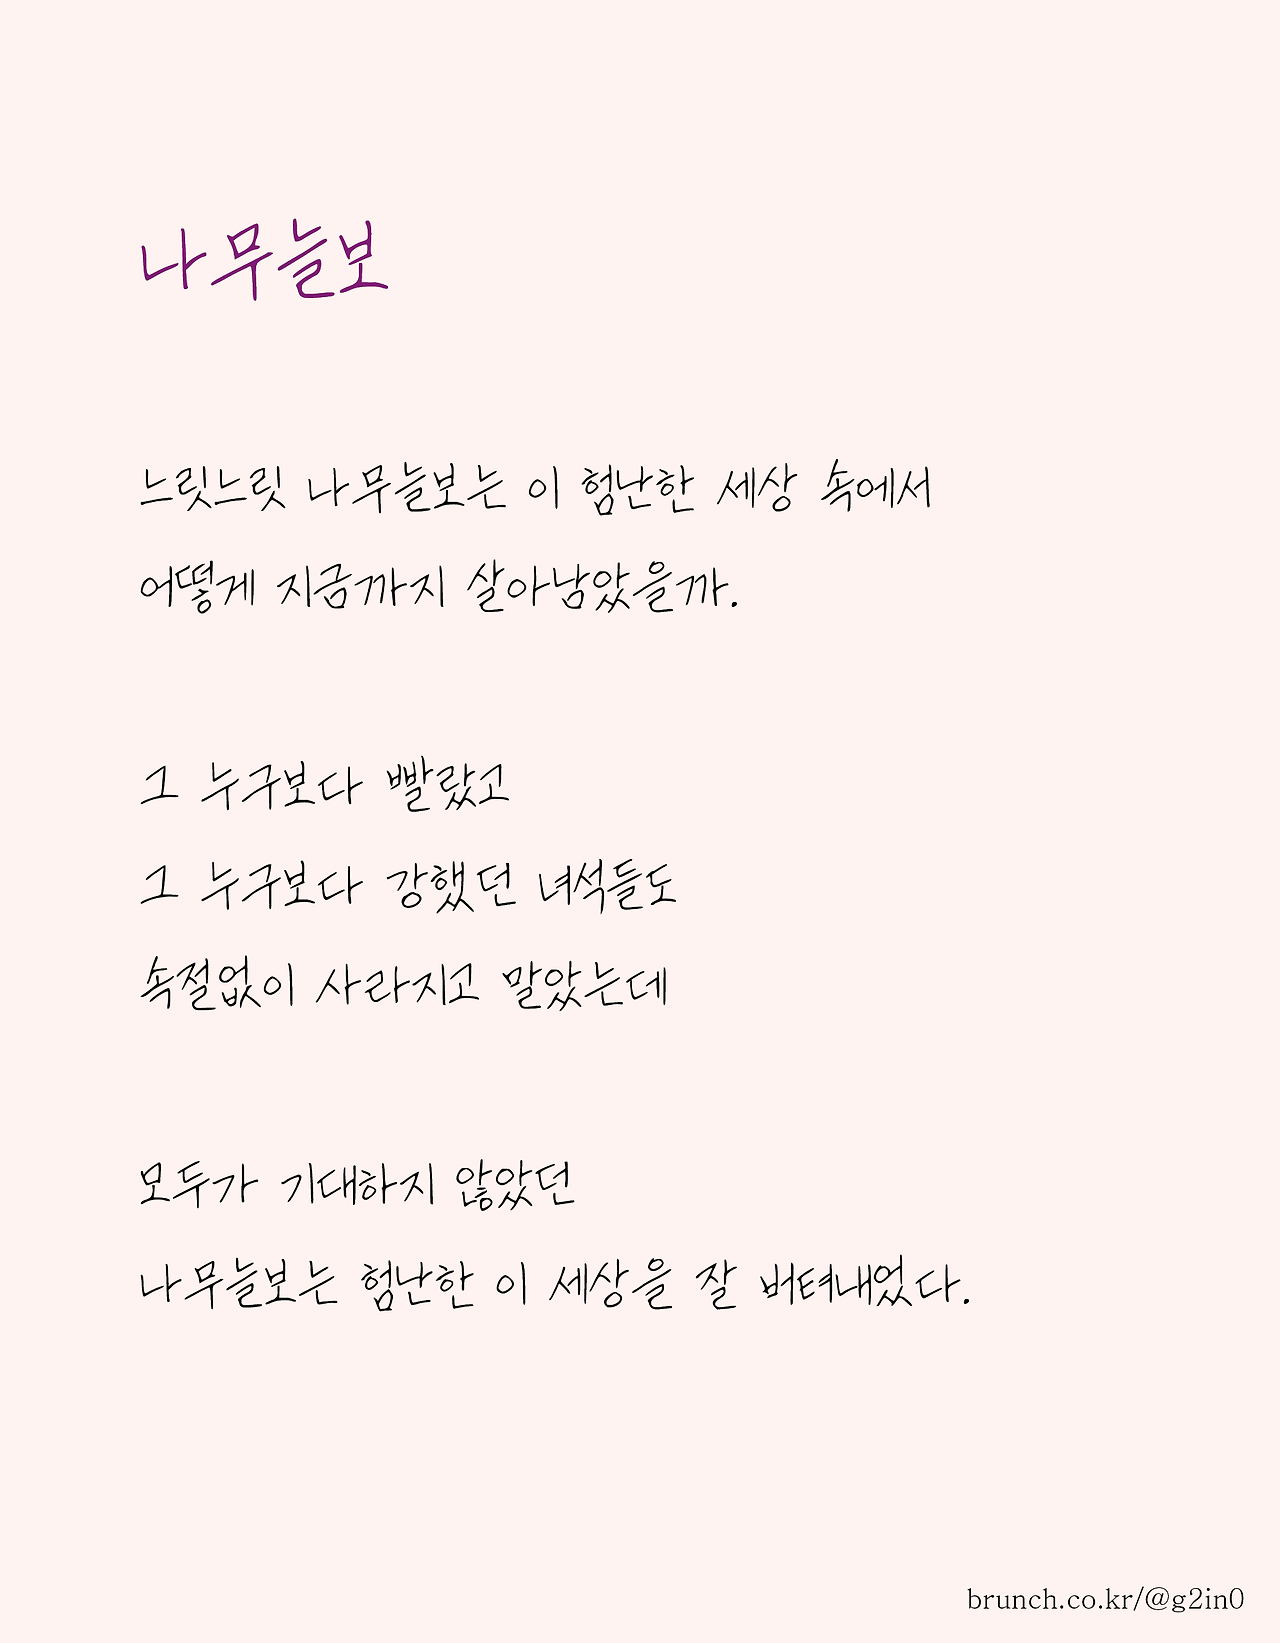 나무늘보
느릿느릿 나무늘보는 이 험난한 세상 속에서
어떻게 지금까지 살아남았을까.
그 누구보다 빨랐고
그 누구보다 강했던 녀석들도
속절없이 사라지고 말았는데
모두가 기대하지 않았던
나무늘보는 험난한 이 세상을 잘 버텨내었다.
brunch.co.kr/@g2in0